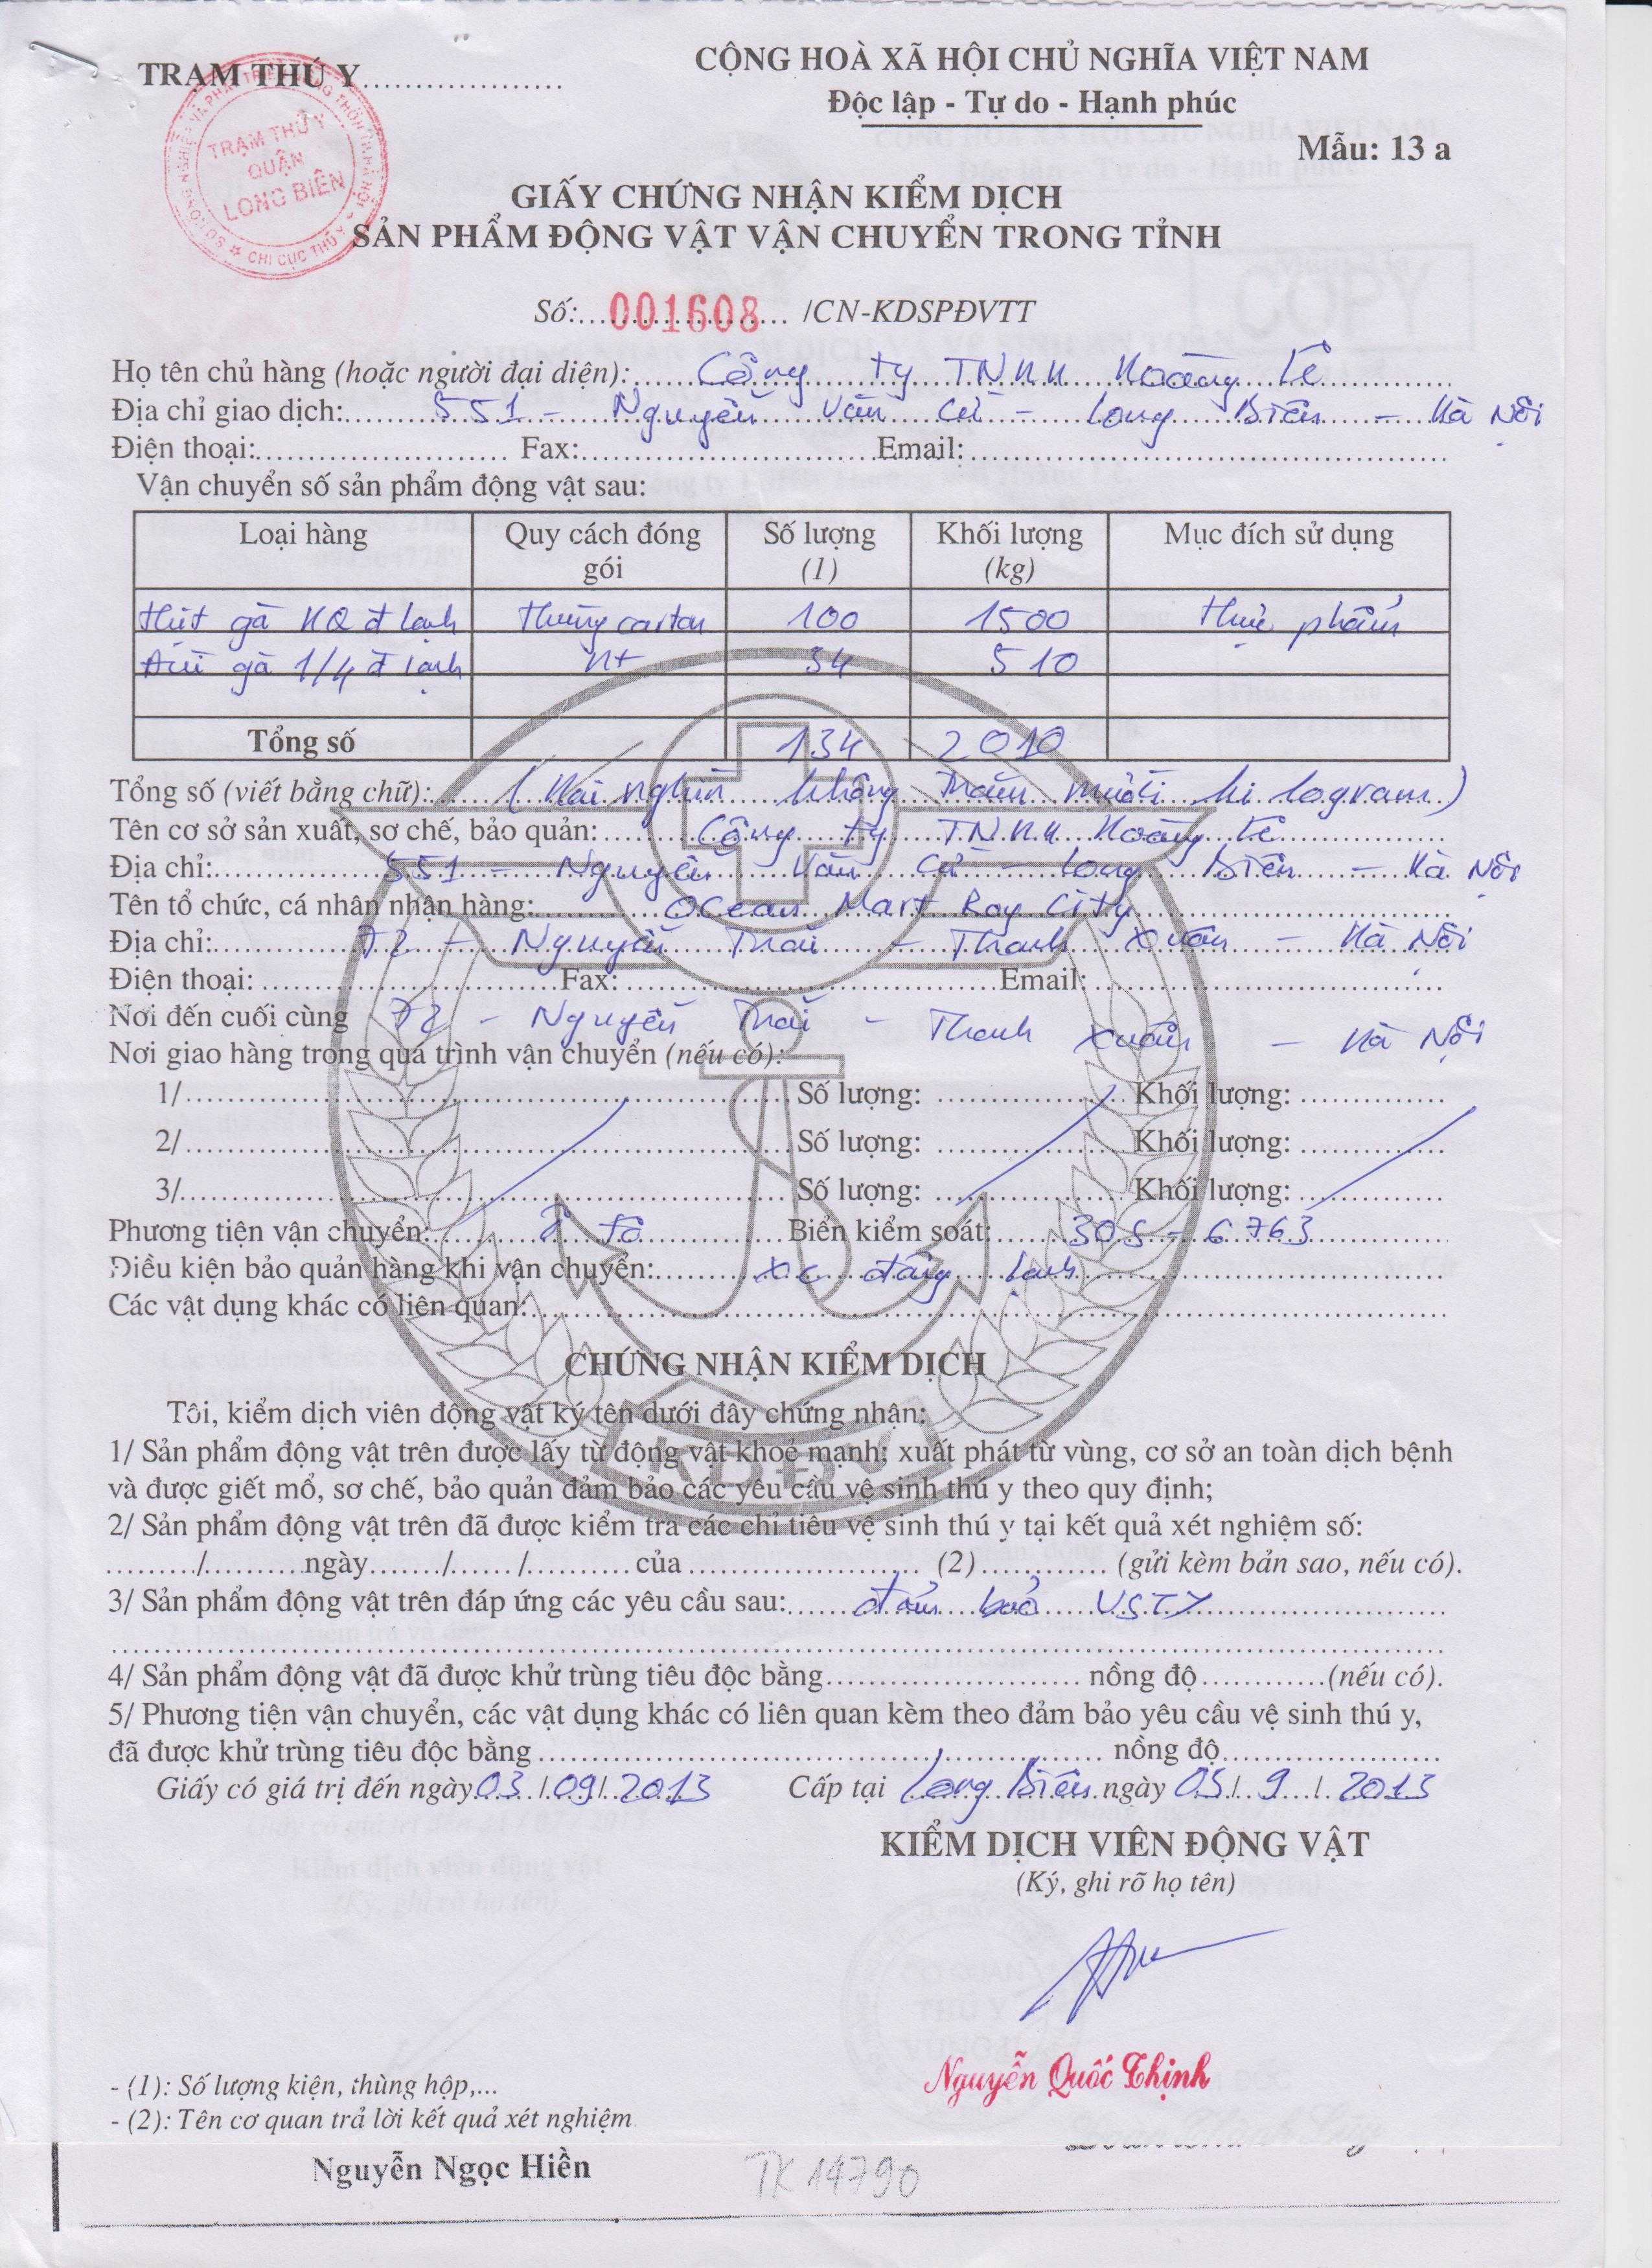 TRẠM THÚ Y...................
CỘNG HOÀ XÃ HỘI CHỦ NGHĨA VIỆT NAM
Độc lập - Tự do - Hạnh phúc
Mẫu: 13 a
TRẠM THÚ Y
QUẬN
LONG BIÊN
CHI CỤC THÚ Y
GIẤY CHỨNG NHẬN KIỂM DỊCH
SẢN PHẨM ĐỘNG VẬT VẬN CHUYỂN TRONG TỈNH
Số:...001608... /CN-KDSPĐVTT
Họ tên chủ hàng (hoặc người đại diện): Công ty TNHH Hoàng Lê
Địa chỉ giao dịch: 551 - Nguyễn Văn Cừ - Long Biên - Hà Nội
Điện thoại:........ Fax:........ Email:........
Vận chuyển số sản phẩm động vật sau:
Loại hàng Quy cách đóng gói Số lượng (1) Khối lượng (kg) Mục đích sử dụng
thịt gà HQ đ lạnh thùng carton 100 1500 thực phẩm
Đùi gà 1/4 đ lạnh nt 34 510
Tổng số 134 2010
Tổng số (viết bằng chữ): (Hai nghìn không trăm mười ki logram)
Tên cơ sở sản xuất, sơ chế, bảo quản: Công ty TNHH Hoàng Lê
Địa chỉ: 551 - Nguyễn Văn Cừ - Long Biên - Hà Nội
Tên tổ chức, cá nhân nhận hàng: Ocean Mart Roy City
Địa chỉ: 72 - Nguyễn Trãi - Thanh Xuân - Hà Nội
Điện thoại:........ Fax:........ Email:........
Nơi đến cuối cùng 72 - Nguyễn Trãi - Thanh Xuân - Hà Nội
Nơi giao hàng trong quá trình vận chuyển (nếu có):
1/........ Số lượng:........ Khối lượng:........
2/........ Số lượng:........ Khối lượng:........
3/........ Số lượng:........ Khối lượng:........
Phương tiện vận chuyển: Ô tô Biển kiểm soát: 30S - 6763
Điều kiện bảo quản hàng khi vận chuyển: Xe đông lạnh
Các vật dụng khác có liên quan:........
CHỨNG NHẬN KIỂM DỊCH
Tôi, kiểm dịch viên động vật ký tên dưới đây chứng nhận:
1/ Sản phẩm động vật trên được lấy từ động vật khoẻ mạnh; xuất phát từ vùng, cơ sở an toàn dịch bệnh
và được giết mổ, sơ chế, bảo quản đảm bảo các yêu cầu vệ sinh thú y theo quy định;
KDĐV
2/ Sản phẩm động vật trên đã được kiểm tra các chỉ tiêu vệ sinh thú y tại kết quả xét nghiệm số:
......../........ngày......./....../......... của........ (2)........ (gửi kèm bản sao, nếu có).
3/ Sản phẩm động vật trên đáp ứng các yêu cầu sau: đảm bảo VSTY
4/ Sản phẩm động vật đã được khử trùng tiêu độc bằng........ nồng độ........(nếu có).
5/ Phương tiện vận chuyển, các vật dụng khác có liên quan kèm theo đảm bảo yêu cầu vệ sinh thú y,
đã được khử trùng tiêu độc bằng........ nồng độ........
Giấy có giá trị đến ngày 03/09/2013 Cấp tại Long Biên ngày 03/9/2013
KIỂM DỊCH VIÊN ĐỘNG VẬT
(Ký, ghi rõ họ tên)
Nguyễn Quốc Thịnh
- (1): Số lượng kiện, thùng hộp,...
- (2): Tên cơ quan trả lời kết quả xét nghiệm
Nguyễn Ngọc Hiền
TK 14790